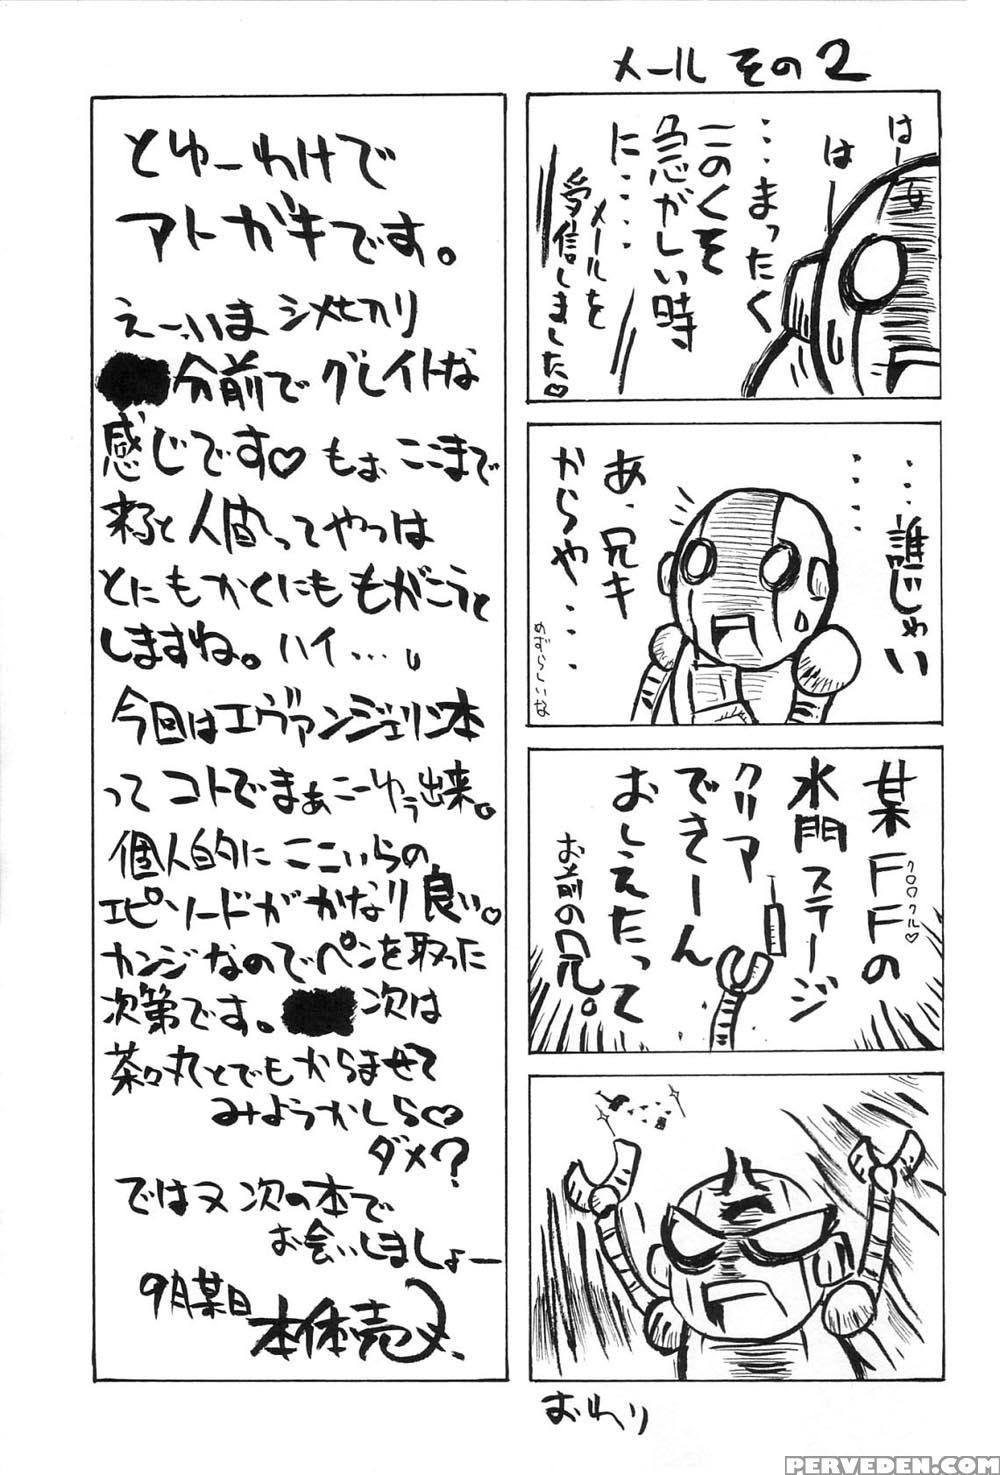 メール その2
はーっ
はー
・・・まったく
このくそ
急がしい時
に・・・・
メールを
受信しました♡
・・・・・誰じゃい
・・・・
あ、兄キ
からや・・・
めずらしいな
某FFの
クロクル♡
水門ステージ
クリア
できーん
おしえたって
お前の兄。
おわり
とゆーわけで
アトガキです。
えーっいま シメセカリ
分前で グレイトな
感じです♡ もぉ ここまで
来ると 人間ってやつは
とにもかくにも もがこうと
しますね。ハイ…。
今回はエヴァンジェリン本
って コトでまぁこーゆう出来。
個人的に ここいらの
エピソードが かなり良い。
カンジなので ペンを取った
次第です。 次は
茶々丸とでも からませて
みようかしら♡
ダメ?
ではヌ 次の本で
お会いしましょー
9月某日
本体売
PERVEDEN.COM